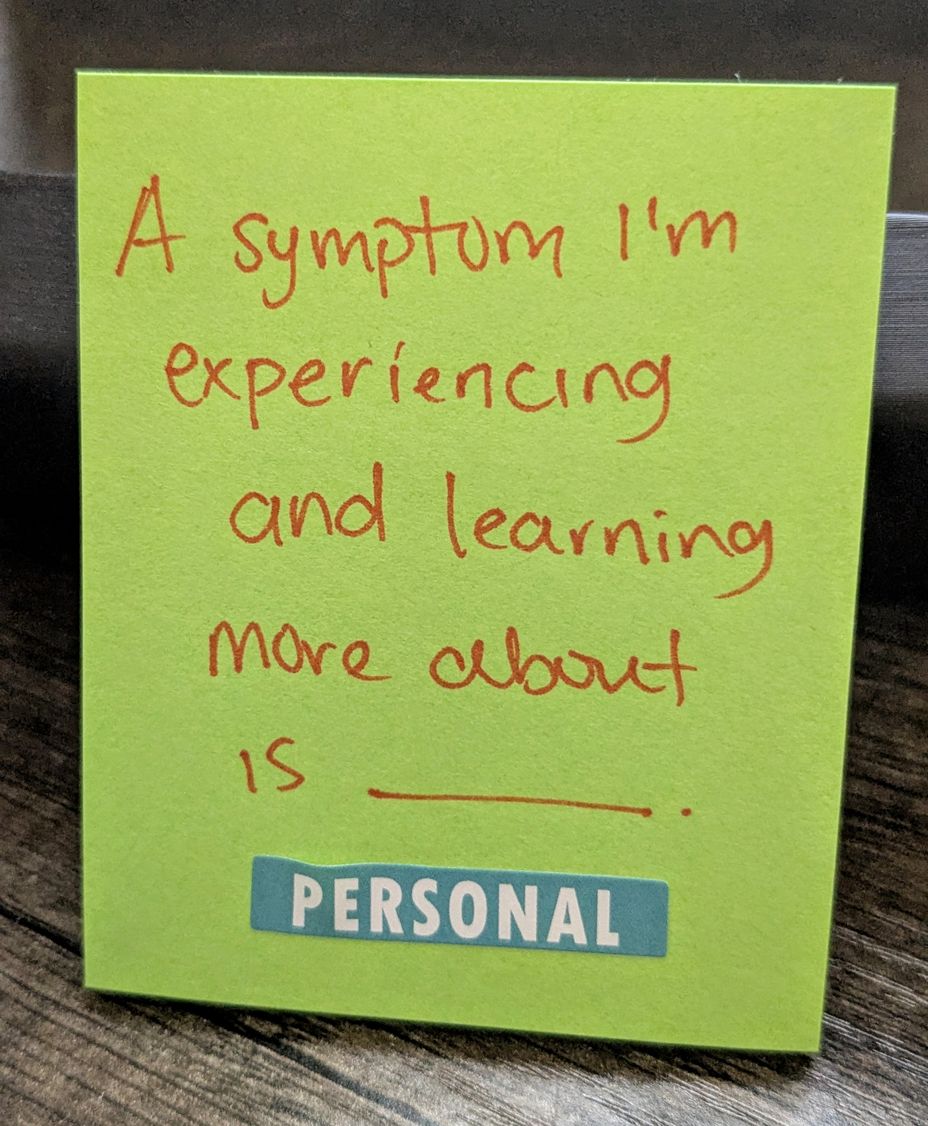 A symptom I'm
experiencing
and learning
more about
is ________.
PERSONAL